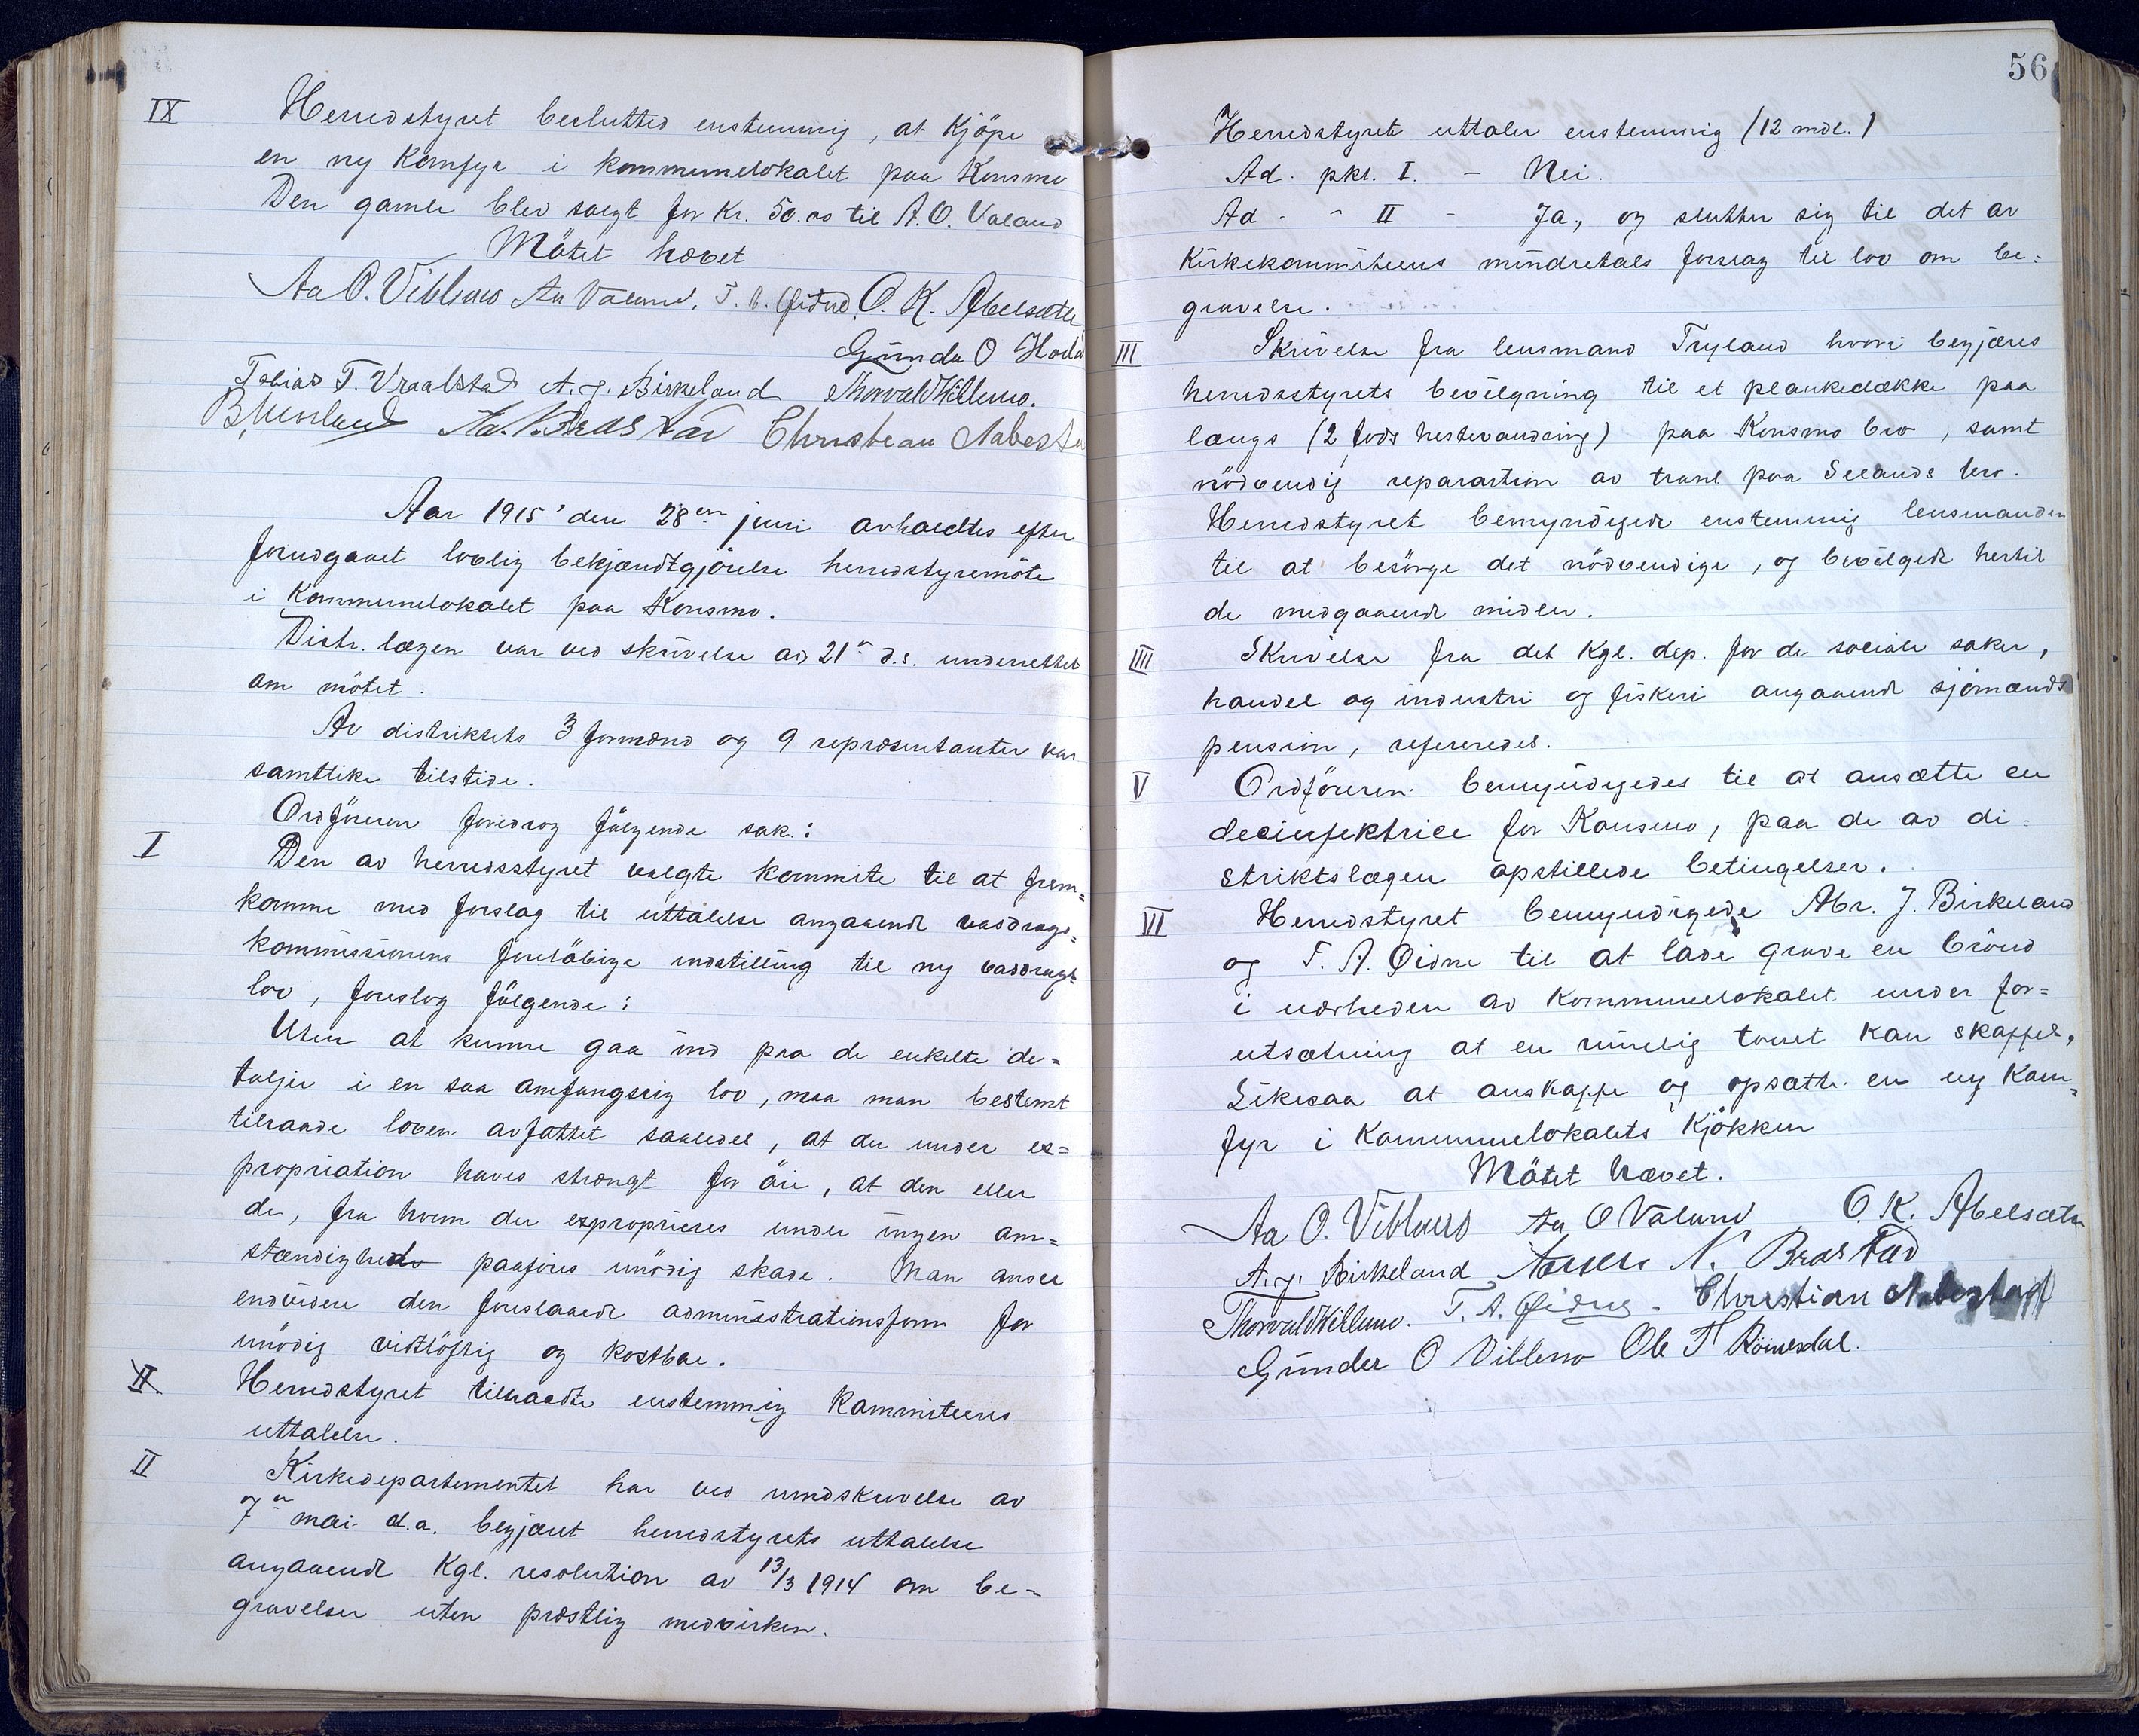 IX Herredstyret besluttet enstemmig, at kjöpe
en ny komfyr i kommunelokalet paa Konsmo
Den gamle blev solgt for kr. 50.00 til A. O. Valand
Mötet hævet
Aa O. Vibleno Aa Valand. T. A. Öidne. O. K. Abelsæth
Gunder O
Tobias T. Vraalstad A. J. Birkeland Thorvald Killeno.
Christian Aabestad
Aar 1915 den 28en juni avholdtes efter
forudgaaet lovlig bekjændtgjörelse herredstyremöte
i Kommunelokalet paa Konsmo.
Distr. lægen var ved skrivelse av 21n d.s. underrettet
om mötet.
Av distriktets 3 formænd og 9 repræsentanter var
samtlike tilstede.
Ordföreren foredrog fölgende sak.:
I Den av herredsstyret valgte kommite til at frem=
komme med forslag til uttalelse angaaende vasdrags=
kommissionens forelöbige indstilling til ny vasdrags=
lov, foreslog fölgende:
Uten at kunne gaa ind paa de enkelte de=
taljer i en saa omfangsrig lov, maa man bestemt
tilraade loven avfattet saaledes, at der under ex=
propriation haves strængt for öie, at den eller
de, fra hvem der exproprieres under ingen om=
stændigheder paaföres unödig skade. Man anser
endvidere den foreslaaede administrationsform for
unödig vidtlöftig og kostbar.
II Herredstyret tilraadte enstemmig kommiteens
uttalelse.
II Kirkedepartementet har ved rundskrivelse av
7n mai d.a. begjæret herredstyrets uttalelse
angaaende Kgl. resolution av 13/3 1914 om be=
gravelser uten præstlig medvirken.
56
Herredstyret uttaler enstemmig (12 mdl.)
Ad. pkt. I. - Nei.
Ad - " II - Ja, og slutter sig til det av
Kirkekommiteens mindretals forslag til lov om be=
gravelse.
III Skrivelse fra lensmand Tryland hvori begjæres
herredsstyrets bevilgning til et plankedække paa
langs (2 fods hestevandring) paa Konsmo bro, samt
nödvendig reparartion av træet paa Seelands bro.
Herredstyret bemyndiget enstemmig lensmanden
til at besörge det nödvendige, og bevilgede hertil
de medgaaende midler.
IIII Skrivelse fra det Kgl. dep. for de sociale saker,
handel og industri og fiskeri angaaende sjömænds
pension, refereredes.
V Ordföreren bemyndigedes til at ansætte en
decinfektrice for Konsmo, paa de av di=
striktslægen opstillede betingelser.
VI Herredstyret bemyndigede Abr. J. Birkeland
og T. A. Öidne til at lade grave en brönd
i nærheden av Kommunelokalet under for=
utsætning at en rimelig tomt kan skaffes,
Likesaa at anskaffe og opsætte en ny kom=
fyr i Kommunelokalets Kjökken
Mötet hævet.
Aa O. Vibleno Aa O Valand O. K. Abelsæth
A. J. Birkeland N. Brastad
Thorvald Killeno. T. A. Öidne. Christian Aabestad
Gunder O Vibleno Ole T Römesdal.